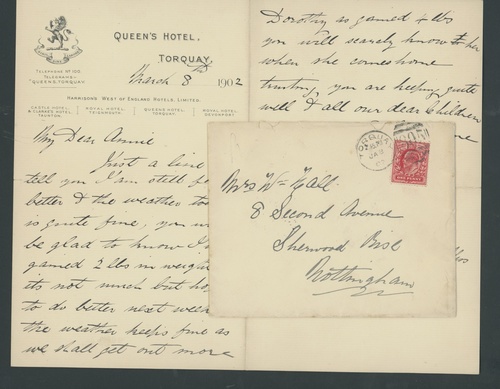 QUEEN'S HOTEL,
TORQUAY.
TELEPHONE Nº 102
TELEGRAMS-
"QUEEN'S, TORQUAY."
March 8th 1902
HARRISONS WEST OF ENGLAND HOTELS, LIMITED.
CASTLE HOTEL
& CLARKE'S HOTEL
TAUNTON.
ROYAL HOTEL
TEIGNMOUTH.
QUEENS HOTEL
TORQUAY.
ROYAL HOTEL
DEVONPORT.
My Dear Annie
Just a line
tell you I am still
better & the weather
is quite fine, you
be glad to know I
gained 2 lbs in weight
its not much but
to do better next week
the weather keeps fine as
we shall get out more
Dorothy as gained 4 lbs
you will scarcely know her
when she comes home
trusting, you are keeping quite
well & all our dear Children
TORQUAY
Mrs Wm Hall
8 Second Avenue
Sherwood Rise
Nottingham